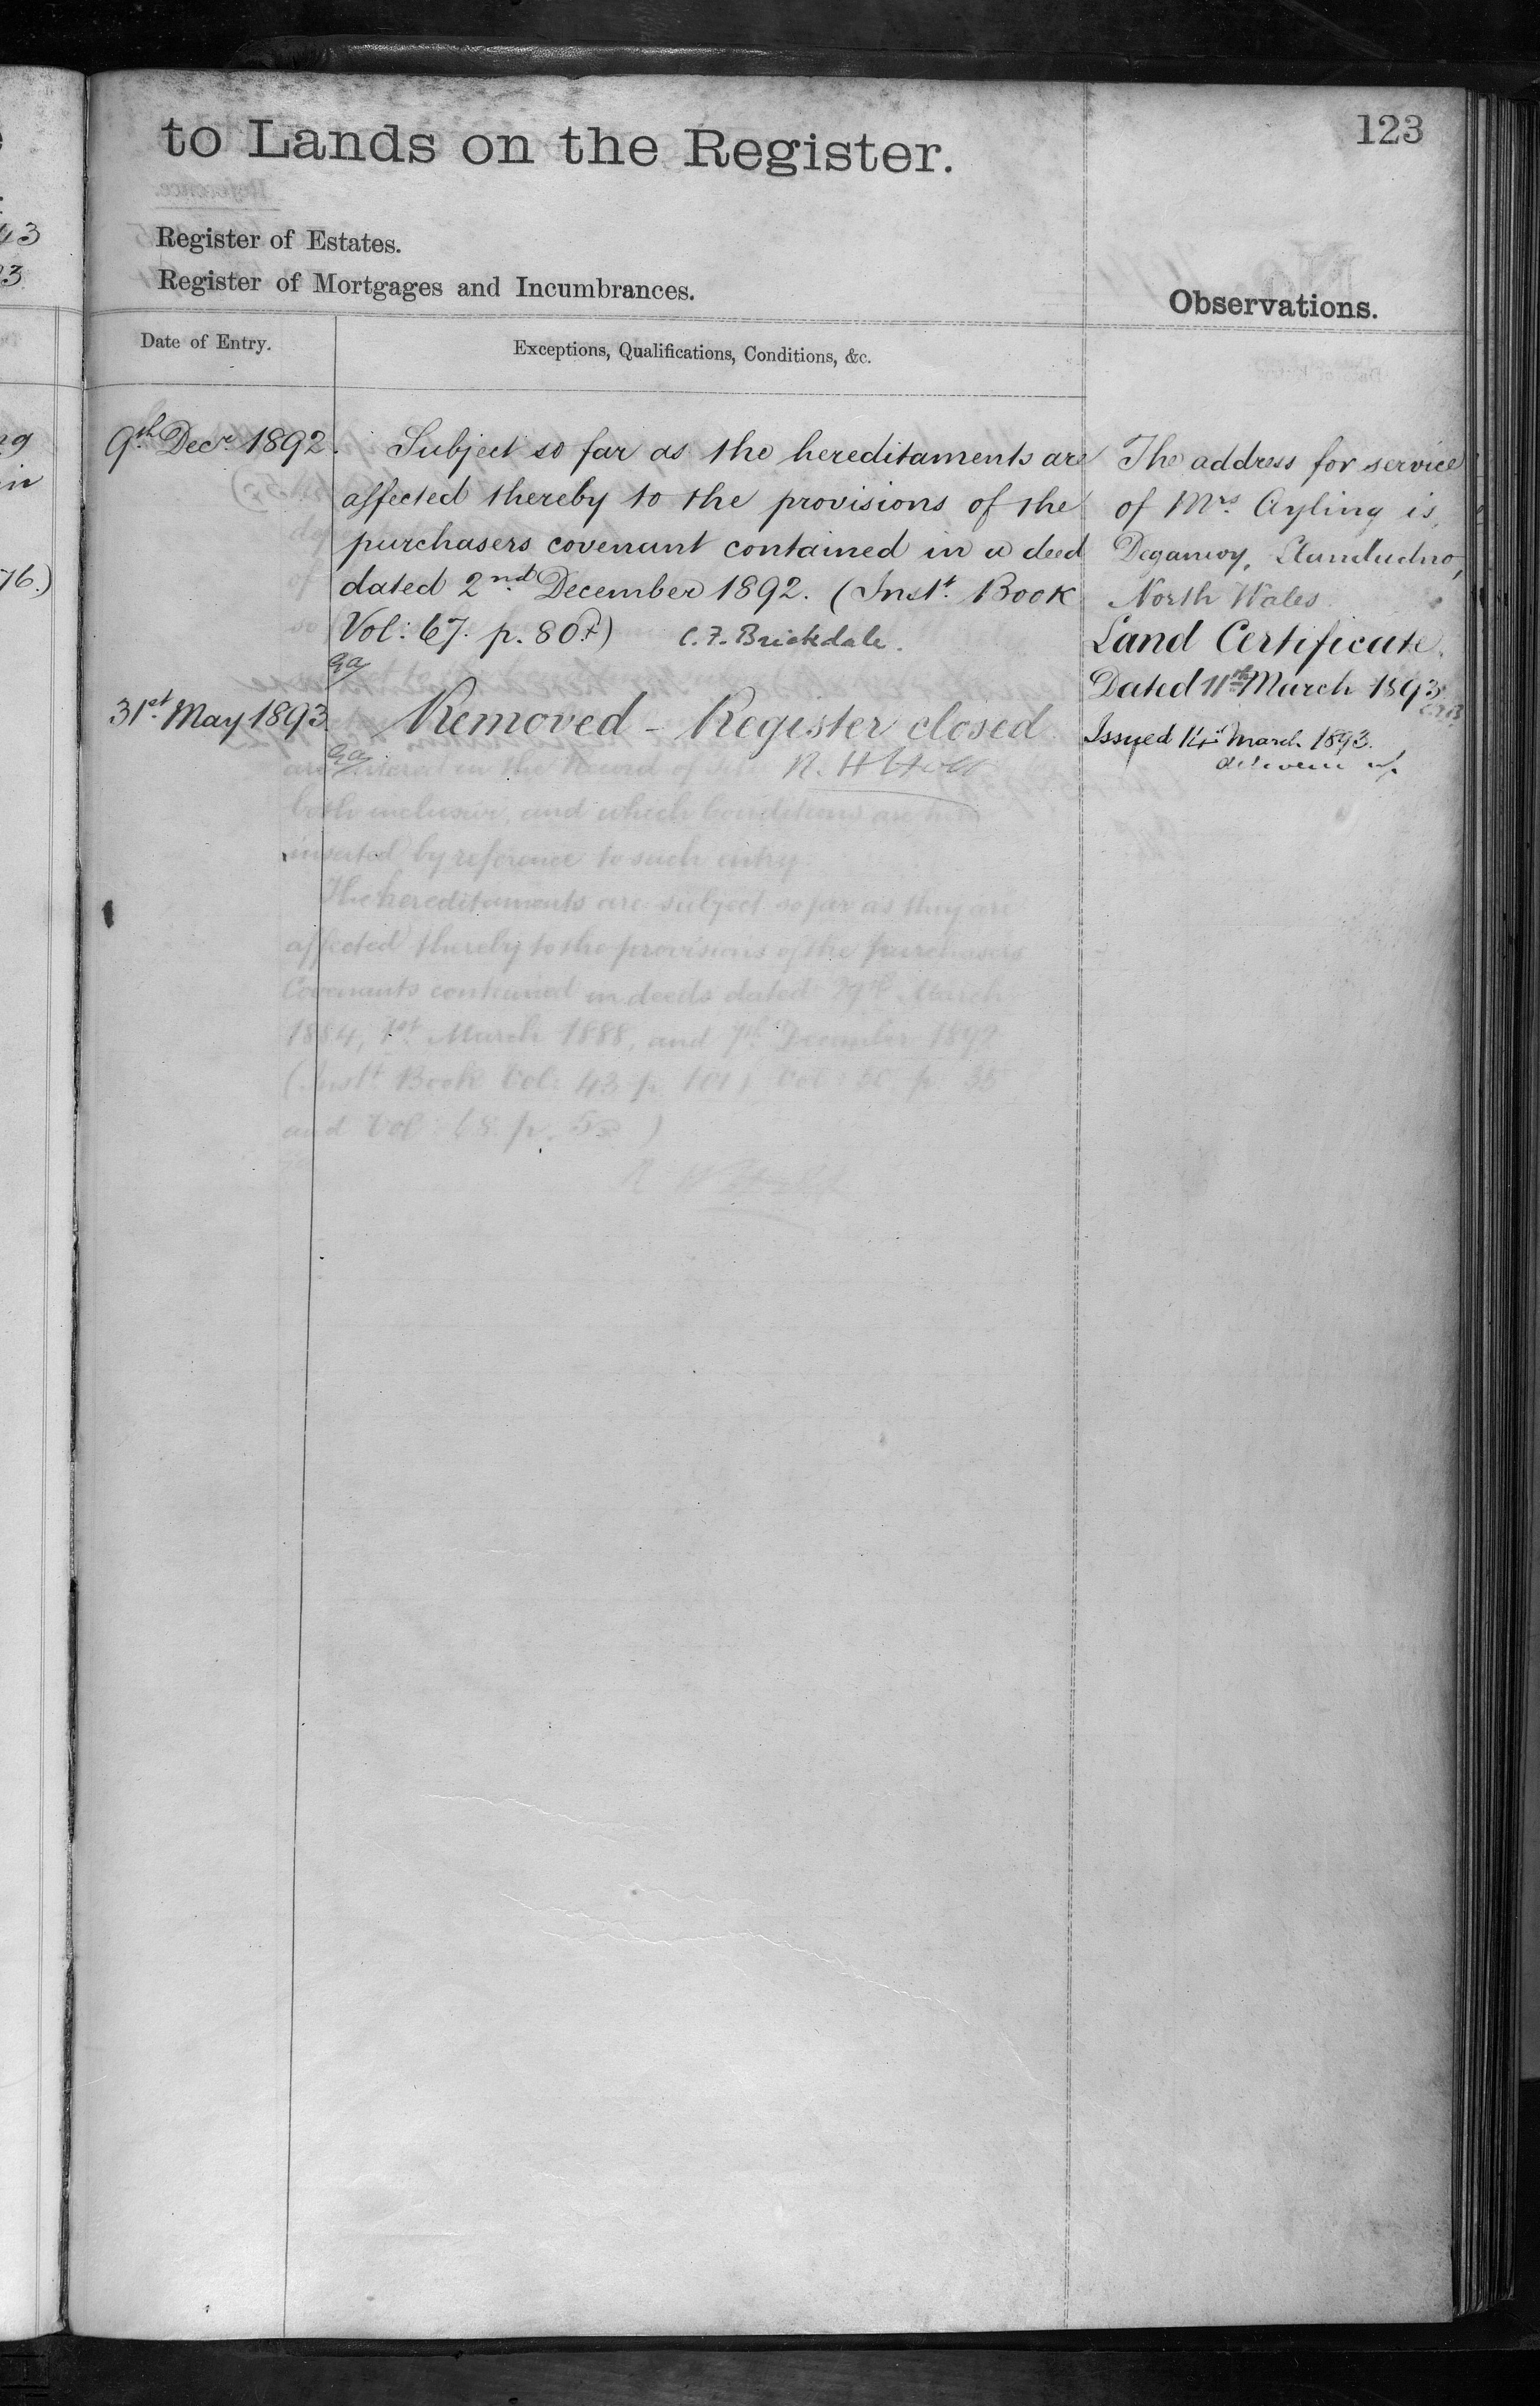 123
to Lands on the Register.
Register of Estates.
Register of Mortgages and Incumbrances.
Observations.
Date of Entry.
Exceptions, Qualifications, Conditions, &c.
9th Decr 1892.
Subject so far as the hereditaments are
affected thereby to the provisions of the
purchasers covenant contained in a deed
dated 2nd December 1892. (Inst. Book
Vol: 67. p. 80
C. F. Brickdale.
31st May 1893.
Removed - Register closed
The address for service
of Mrs. Ayling is,
Deganwy, Llandudno,
North Wales.
Land Certificate.
Dated 11th March 1893
Issued 14th March 1893.
are entered in the Record of
both inclusive, and which Conditions are
inserted by reference to such entry.
The hereditaments are subject so far as they are
affected thereby to the provisions of the purchasers
Covenants contained in deeds dated 29th March
1884, 1st March 1888, and 7th December 1892
(Inst. Book Vol: 43 p. 101, Vol: 50. p. 35
and Vol: